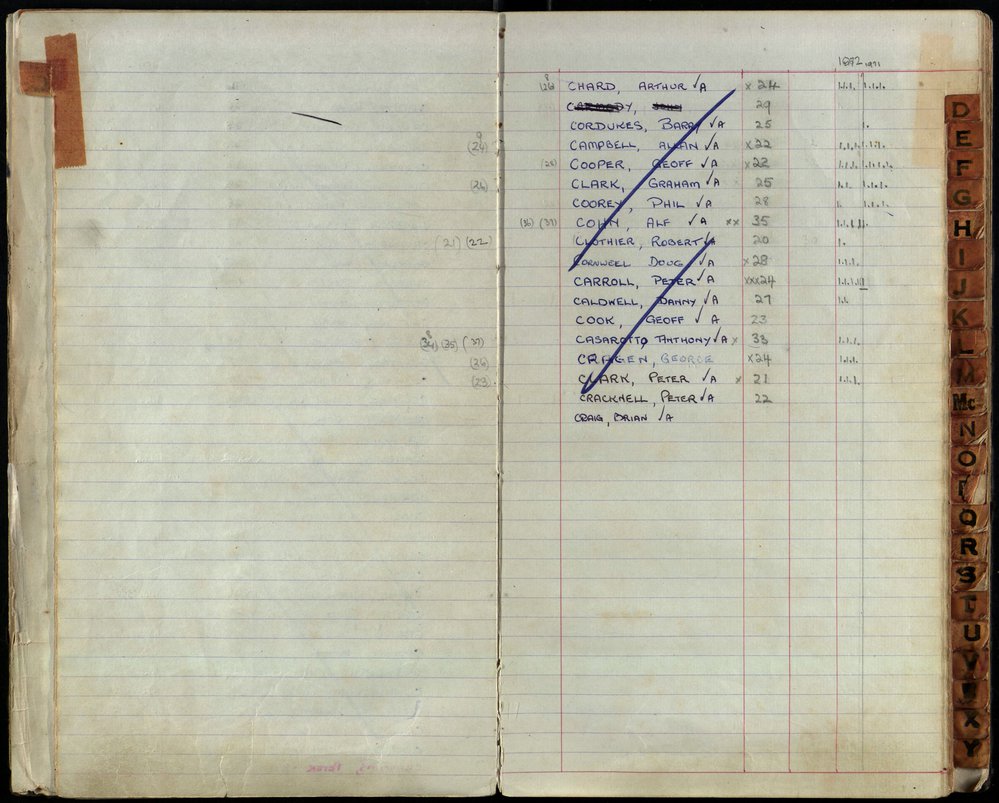 1892 1971
(26) 8 CHARD, ARTHUR √A x 24
29
CORDUKES, BARRY √A 25
(24) 9 CAMPBELL, ALLAN √A x22
(25) COOPER, GEOFF √A x22
(26) CLARK, GRAHAM √A 25
COOREY, PHIL √A 28
(36) (37) COHN, ALF √A xx 35
(21) (22) CLOTHIER, ROBERT √A 20
CORNWEEL DOUG √A x28
CARROLL, PETER √A xxx24
CALDWELL, DANNY √A 27
COOK, GEOFF √A 23
(35) (37) CASAROTTO, ANTHONY √A x 33
(26) CRAGEN, GEORGE x24
(23) CLARK, PETER √A x 21
CRACKNELL, PETER √A 22
CRAIG, BRIAN √A
D
E
F
G
H
I
J
K
L
M
Mc
N
O
P
Q
R
S
T
U
V
X
Y